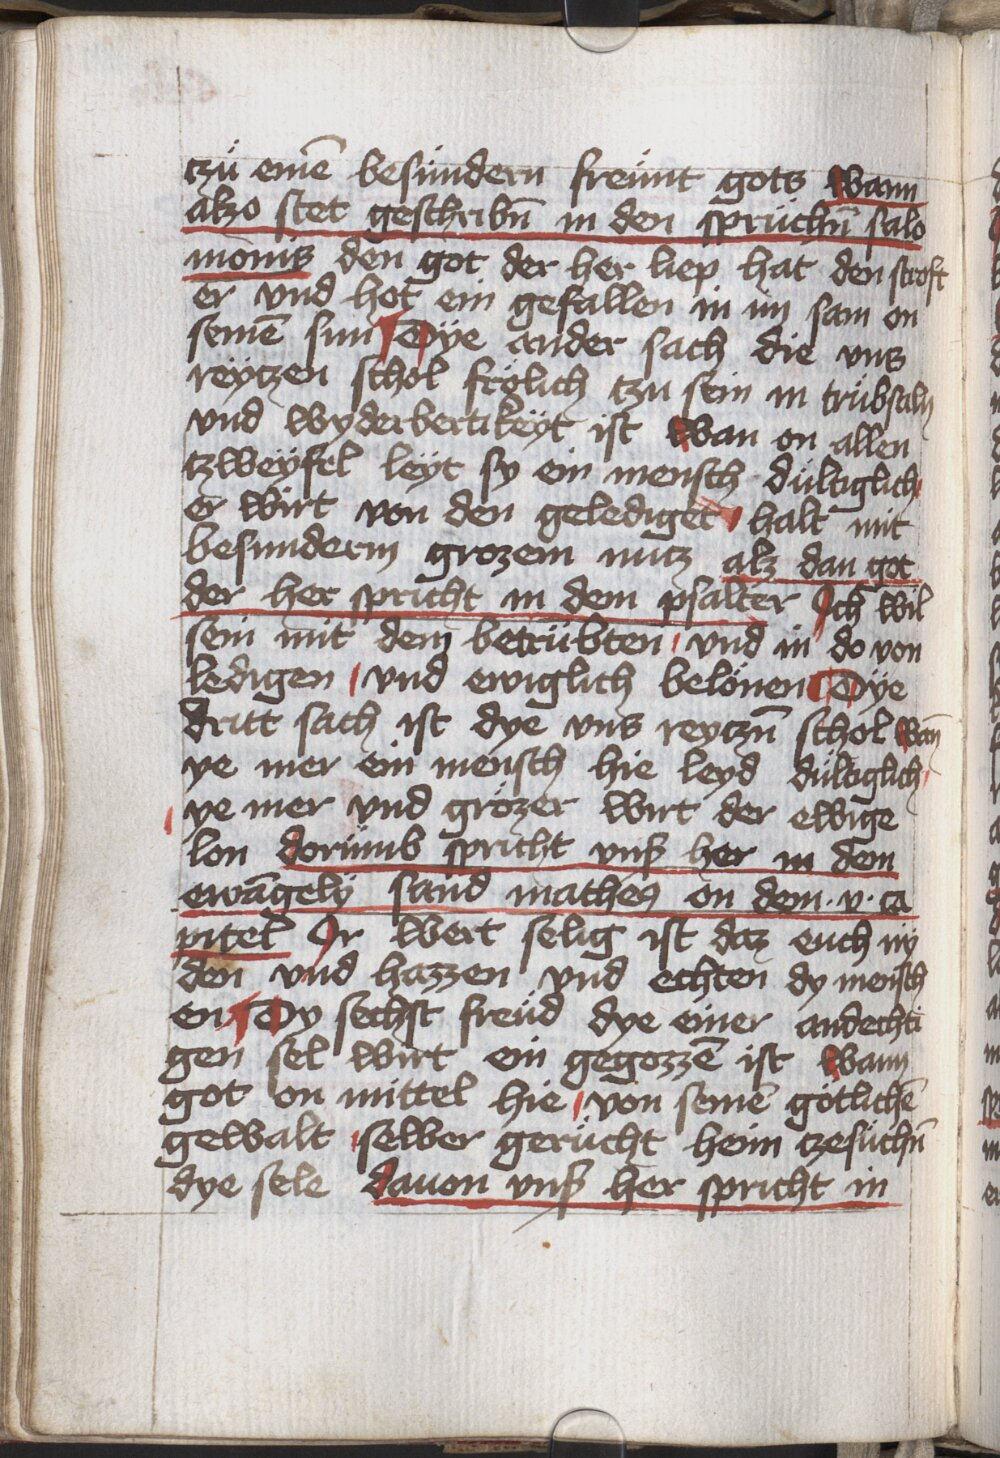 tzü einē besündern freünt gots Wann
alzo stet geschribn̄ in den sprüchn̄ salo
monis den got der her liep hat den stroft
er vnd hot ein gefallen in im sam on
seinē sun Dÿe ander sach die vns
reÿtzen schol frölich tzu sein in trübsaln
vnd wyderbertikeÿt ist Wan on allen
tzweÿfel leÿt sy ein mensch dültiglich
er wirt von den gelediget halt mit
besunderm grozem nutz alz dan got
der her spricht in dem psalter Ich wil
sein mit dem betrübten vnd in do von
ledigen vnd ewiglich belönen Dÿe
dritt sach ist dye vns reytzn̄ schol Wan̄
ye mer ein mensch hie leyd dültiglich
ye mer vnd grözer wirt der ewige
lon dorümb spricht vnß her in dem
ewāgely sand matheus on dem .v. ca
pitel Ir wert selig ist daz euch ny
den vnd hazzen vnd echten dy mensch
en Dy sechst freüd dye einer andechti
gen sel wirt ein gegozzē ist Wann
got on mittel hie von seinē götlichē
gewalt selber gerücht heim tzesüchn̄
dye sele dauon vnß her spricht in